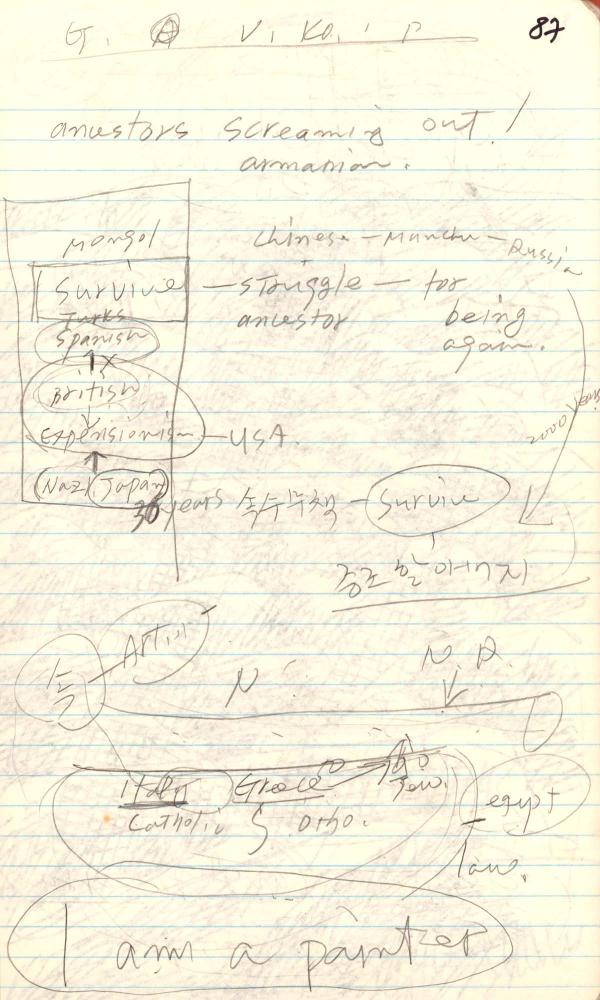 G. A V. K. : P
87
ancestors screaming out!
armanian.
Mongol
Chinese - Manchu - Russia
Survive - struggle - for
Turks
ancestor being
Spanish
again.
British
2000 years
Expensionism - USA.
Nazi Japan
36 years 속수무책 - Survive
증조 할아버지
속 - Artist
N N.R.
Italy Greece
Jew.
Catholic & Otho.
egypt
law.
I am a painter